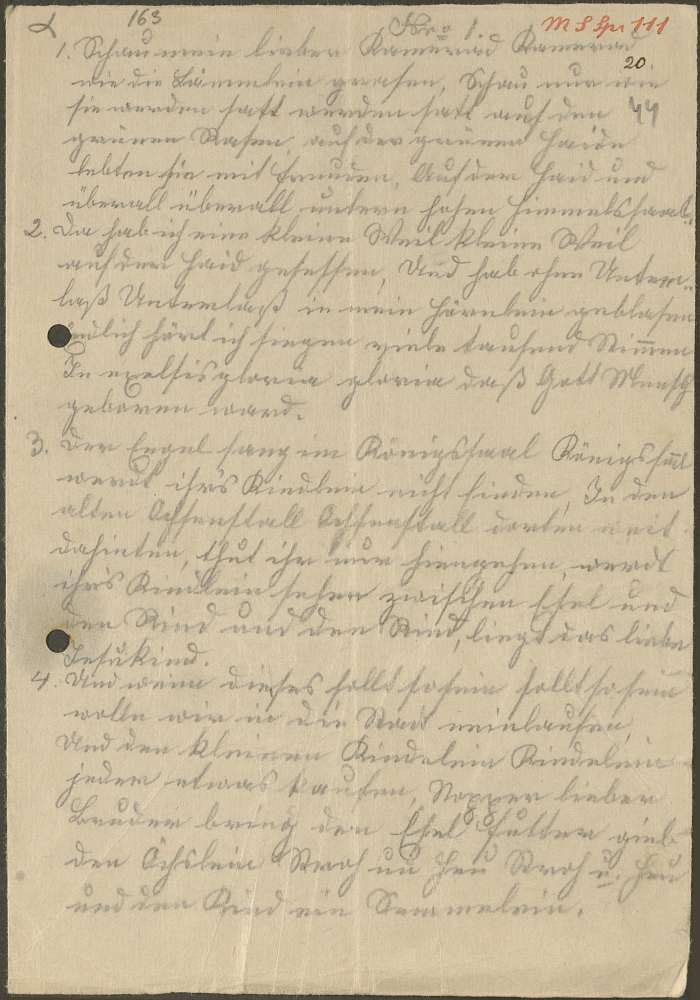 163
Nro 1.
M S Spr 111
20.
44
1. Schau mein lieber Kamerad Kamerad
wie die Lämmelein grasen, Schau nur wie
sie werden satt werden satt auf den
grünen Rasen, auf der grünen Haide
lebten sie mit Freuden, Auf der Haid und
überall überall untern hohen Himmelssaal.
2. Da hab ich eine kleine Weil kleine Weil
auf der Haid gesessen, Und hab ohne Unter=
laß Unterlaß in mein Hörnlein geblasen
endlich hört ich singen viele tausend Stimmen
In exelsis gloria gloria daß Gott Mensch
geboren ward.
3. Der Engel sang im Königssaal Königssaal
werdt ihrs Kindlein nicht finden, In den
alten Ochsenstall Ochsenstall dorten weit
dahinten, thut ihr nur hingehen, werdt
ihrs Kindlein sehen zwischen Esel und
den Rind und den Rind, liegt das liebe
Jesukind.
4. Und wenn dieses sollt so sein sollt so sein
wolln wir in die Stadt neinlaufen,
Und den kleinen Kindelein Kindelein
jeder etwas kaufen, lieber
Bruder bring den Esel Futter gieb
den Öchslein Stroh un Heu Stroh u. Heu
und den Kind ein Semmelein.